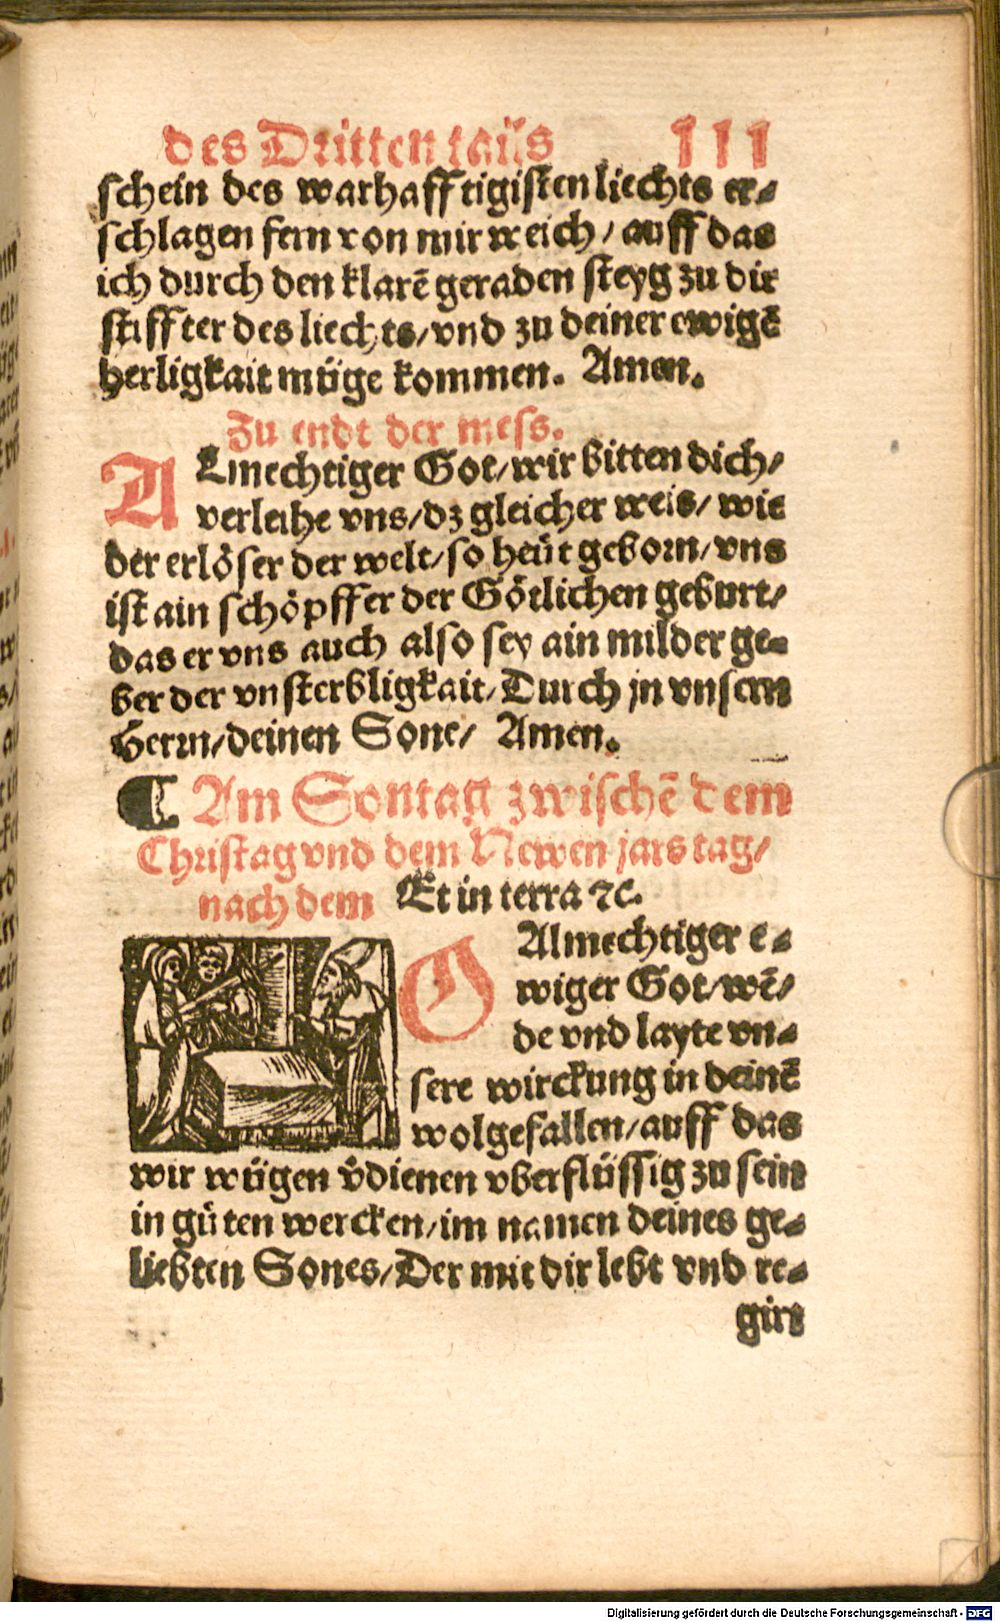 des Dritten tails 111
schein des warhafftigisten liechts er⸗
schlagen fern von mir weich / auff das
ich durch den klarē geraden steyg zu dir
stiffter des liechts/vnd zu deiner ewigē
herligkait müge kommen. Amen.
Zu endt der mess.
ALmechtiger Got/wir bitten dich/
verleihe vns/dz gleicher weis/ wie
der erlöser der welt/so heüt geborn/vns
ist ain schöpffer der Götlichen geburt/
das er vns auch also sey ain milder ge⸗
ber der vnsterbligkait/Durch jn vnsern
Herrn/deinen Sone/ Amen.
¶ Am Sontag zwischē dem
Christag vnd dem Newen jars tag/
nach dem Et in terra ⁊c.
O Almechtiger e⸗
wiger Got/wē/
de vnd layte vn⸗
sere wirckung in deinē
wolgefallen/auff das
wir mügen v̊dienen vberflüssig zu sein
in gůten wercken/im namen deines ge⸗
liebten Sones/Der mit dir lebt vnd re⸗
girt
Digitalisierung gefördert durch die Deutsche Forschungsgemeinschaft - DFG